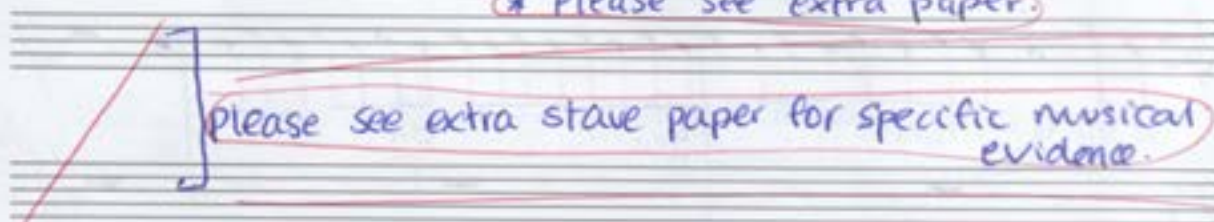 * Please see extra paper.
please see extra stave paper for specific musical
evidence.